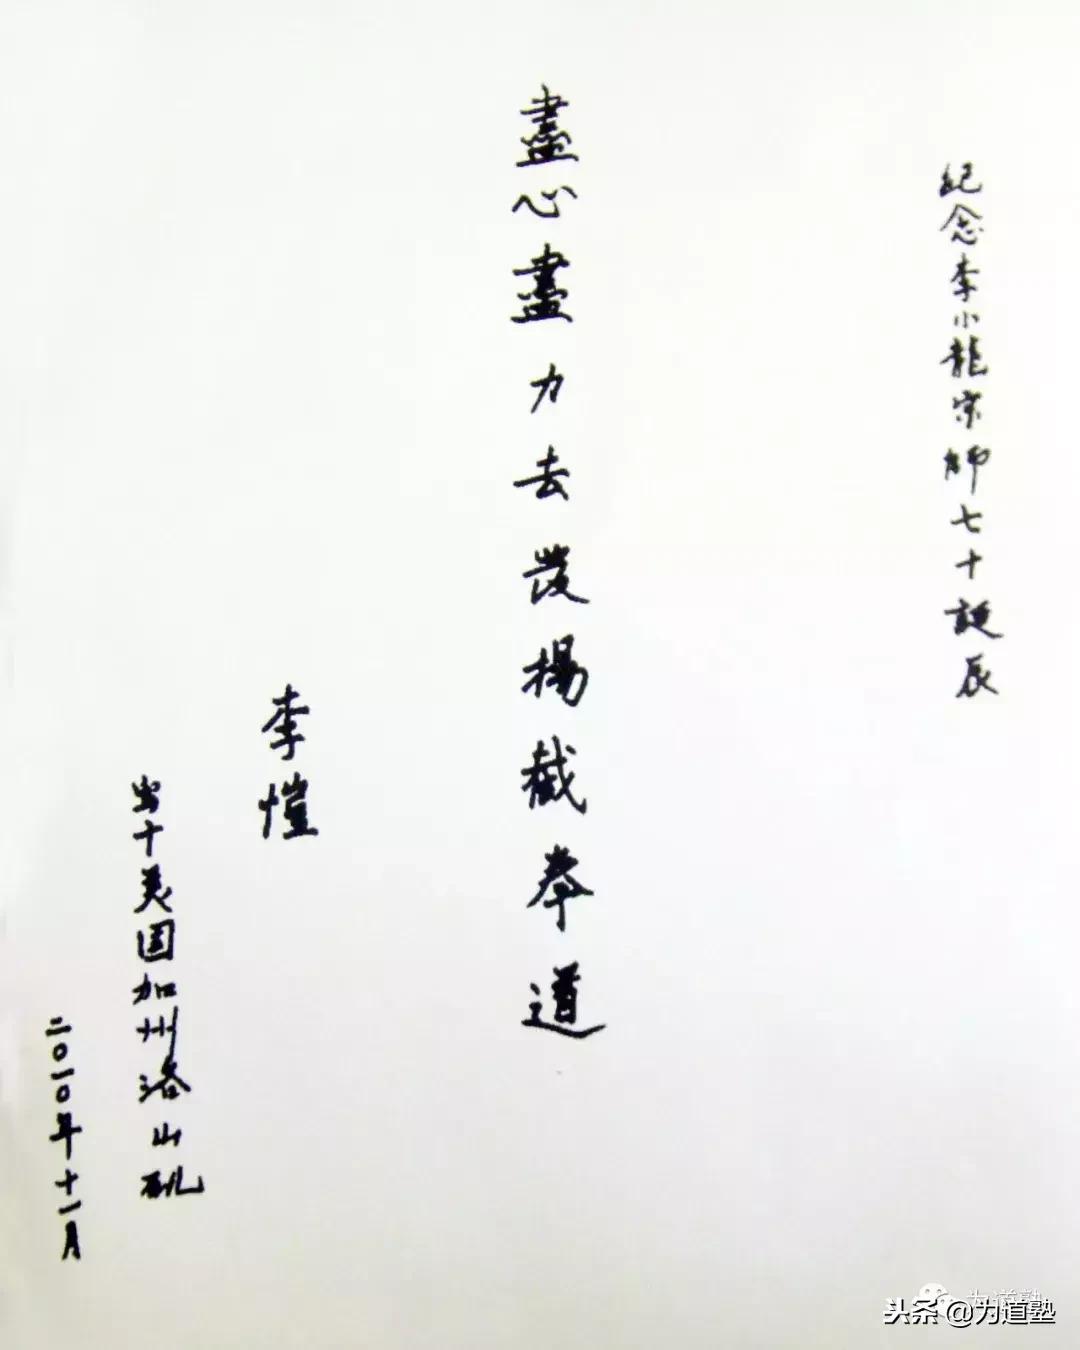 紀念李小龍宗師七十誕辰
盡心盡力去發揚截拳道
李愷
寫于美国加州洛山矶
二〇一〇年十一月
为道塾
头条 @为道塾